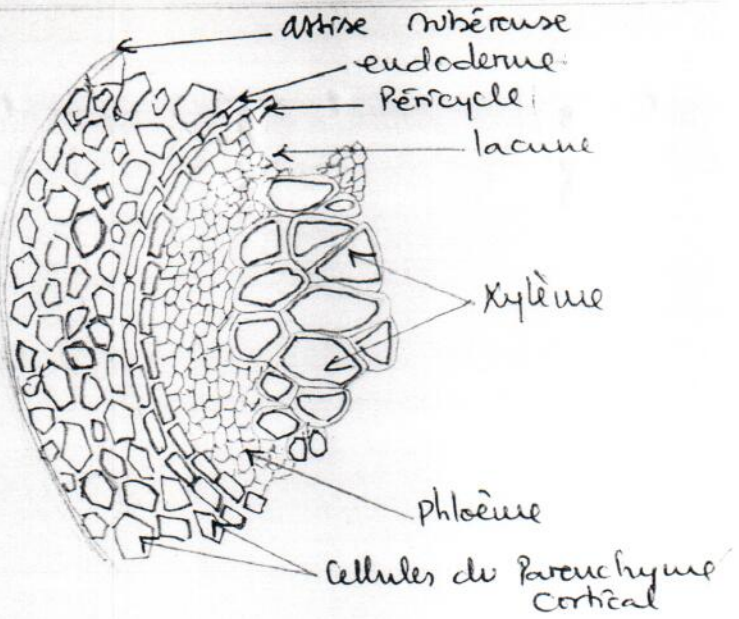 assise subéreuse
endoderme
Péricycle
lacune
Xylème
Phloème
Cellules du Parenchyme
Cortical